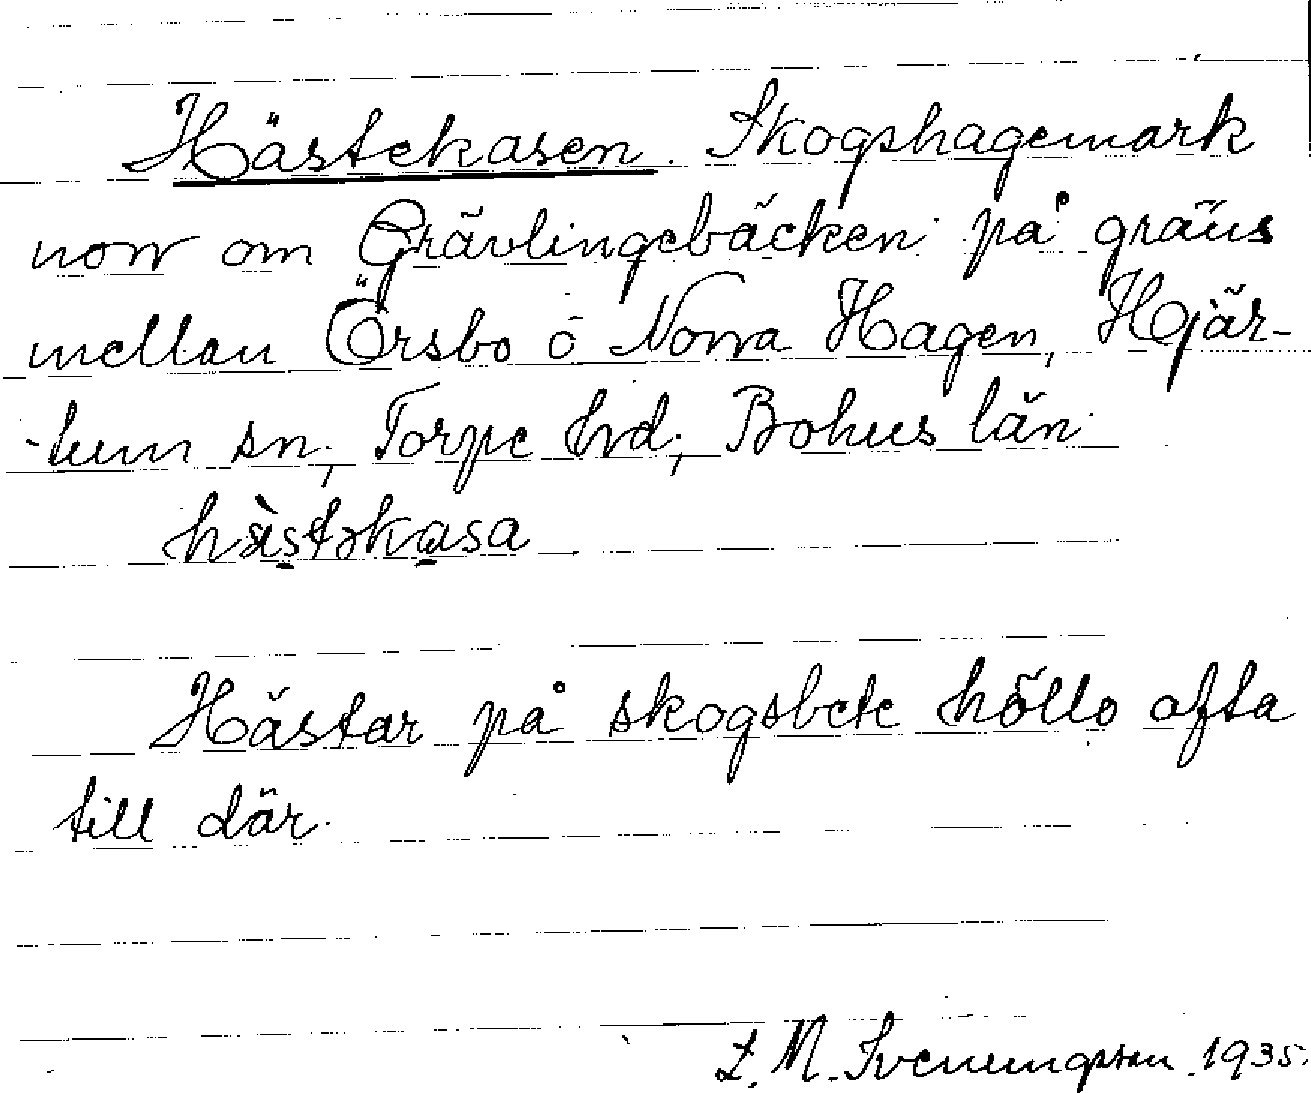 Hästekasen. Skogshagemark
norr om Grävlingebäcken på gräns
mellan Örsbo o Norra Hagen, Hjär-
tum sn, Torpe hd, Bohus län
hästəkasa
Hästar på skogsbete höllo ofta
till där.
L. M. Svenungsson 1935.